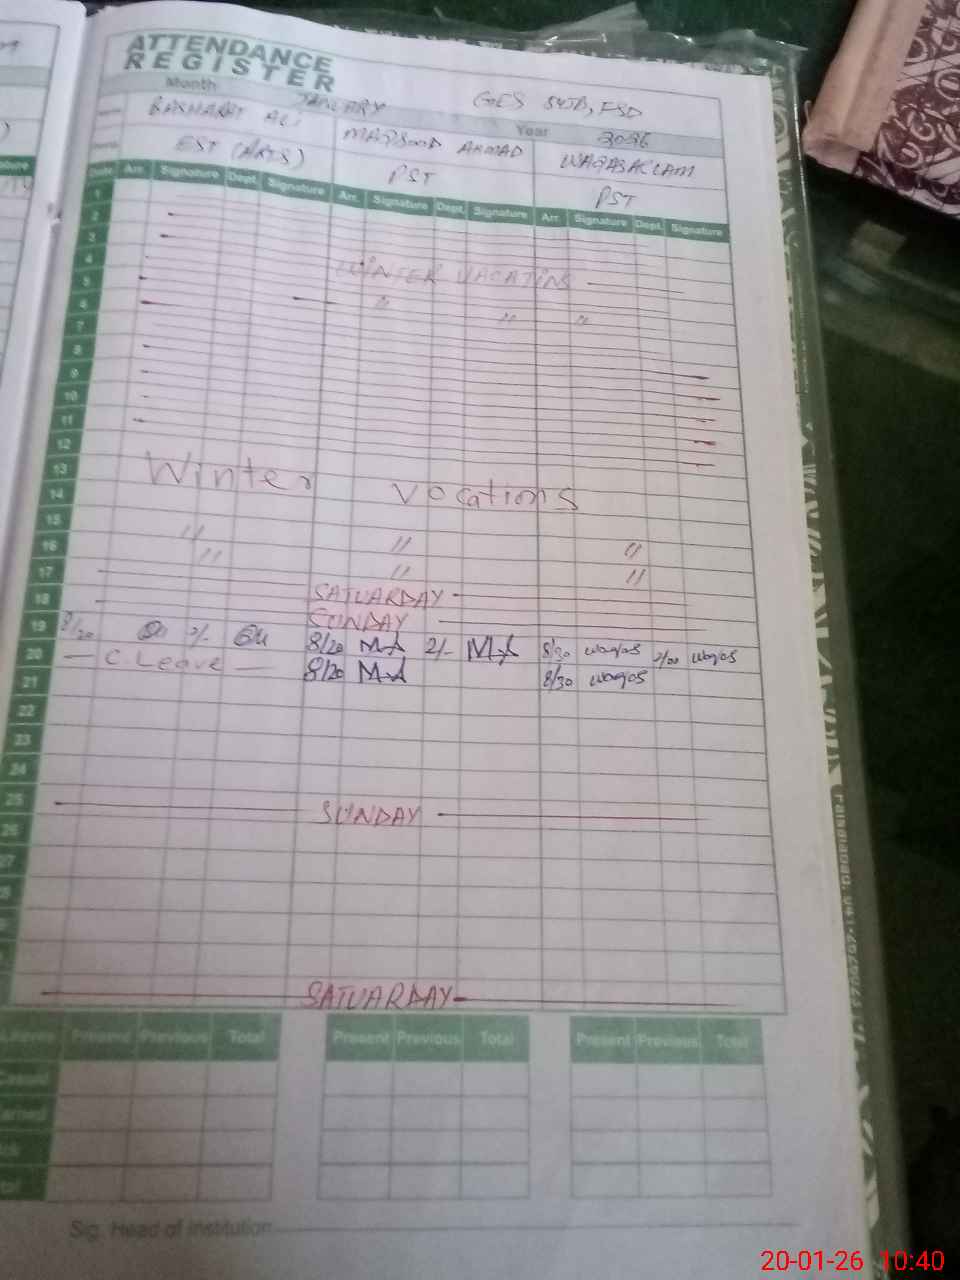 ATTENDANCE
REGISTER
Month JANUARY GES 54JB, FSD
Year 2026
BASHARAT ALI MAQSOOD AHMAD WAQAS ASLAM
EST (ARTS) PST PST
Date Arr. Signature Dept. Signature Arr. Signature Dept. Signature Arr. Signature Dept. Signature
1
2
3
4
5 WINTER VACATINS
6 "
7 " "
8
9
10
11
12
13 Winter
14 vocations
15
16 " " "
17 " " "
18 SATUARDAY
19 SUNDAY
20 8/20 2/- 8/20 MA 2/- MA 8/30 waqas 2/00 waqas
21 - C. Leave - 8/20 MA 8/30 waqas
22
23
24
25 SUNDAY
26
27
SATUARDAY
Present Previous Total Present Previous Total Present Previous Total
Casual
Earned
Sig. Head of Institution
20-01-26 10:40